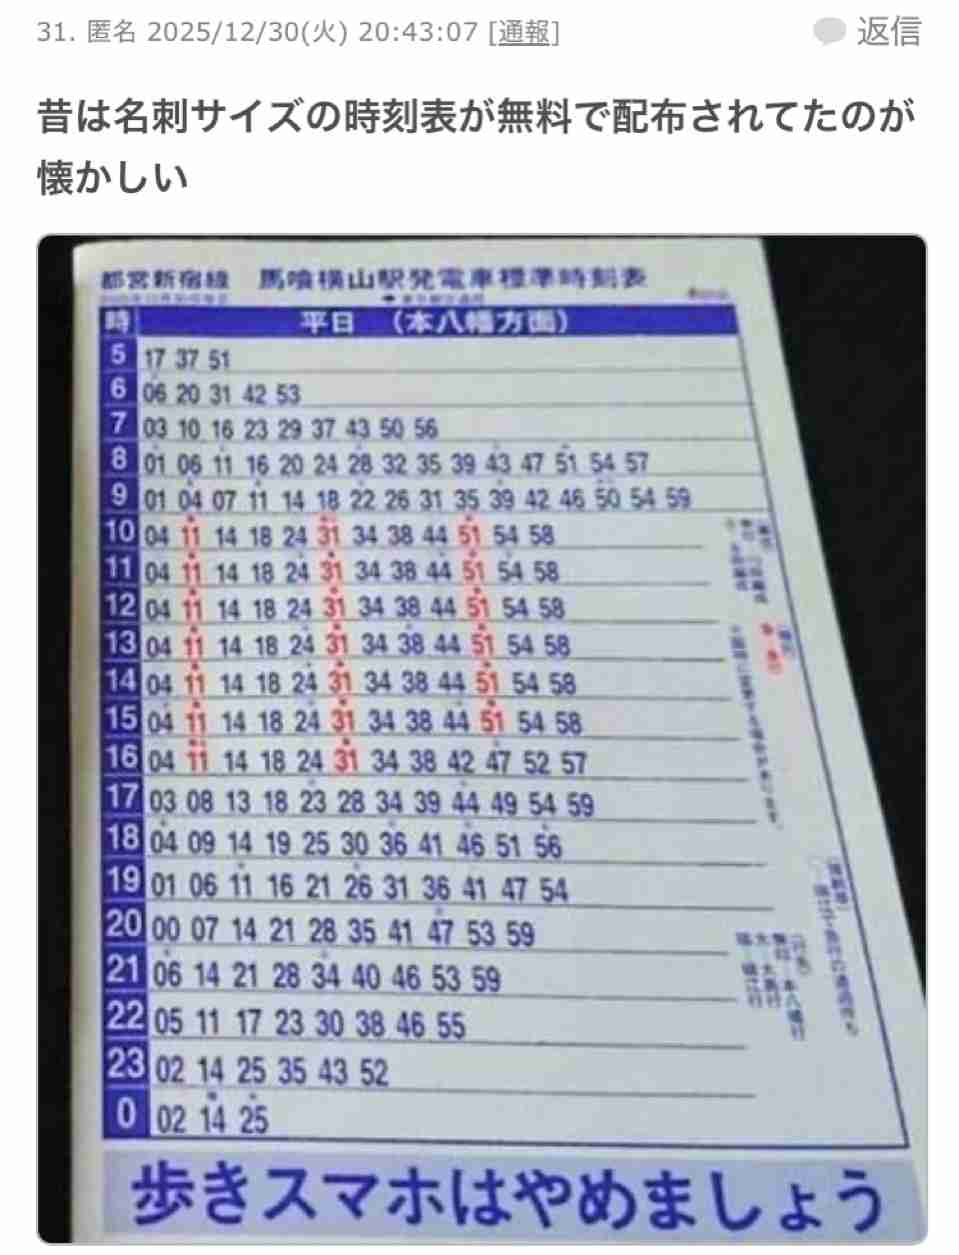 31. 匿名 2025/12/30(火) 20:43:07 [通報]
返信
昔は名刺サイズの時刻表が無料で配布されてたのが
懐かしい
都営新宿線 馬喰横山駅発電車標準時刻表
時 平日 (本八幡方面)
5 17 37 51
6 06 20 31 42 53
7 03 10 16 23 29 37 43 50 56
8 01 06 11 16 20 24 28 32 35 39 43 47 51 54 57
9 01 04 07 11 14 18 22 26 31 35 39 42 46 50 54 59
10 04 11 14 18 24 31 34 38 44 51 54 58
11 04 11 14 18 24 31 34 38 44 51 54 58
12 04 11 14 18 24 31 34 38 44 51 54 58
13 04 11 14 18 24 31 34 38 44 51 54 58
14 04 11 14 18 24 31 34 38 44 51 54 58
15 04 11 14 18 24 31 34 38 44 51 54 58
16 04 11 14 18 24 31 34 38 42 47 52 57
17 03 08 13 18 23 28 34 39 44 49 54 59
18 04 09 14 19 25 30 36 41 46 51 56
19 01 06 11 16 21 26 31 36 41 47 54
20 00 07 14 21 28 35 41 47 53 59
21 06 14 21 28 34 40 46 53 59
22 05 11 17 23 30 38 46 55
23 02 14 25 35 43 52
0 02 14 25
歩きスマホはやめましょう